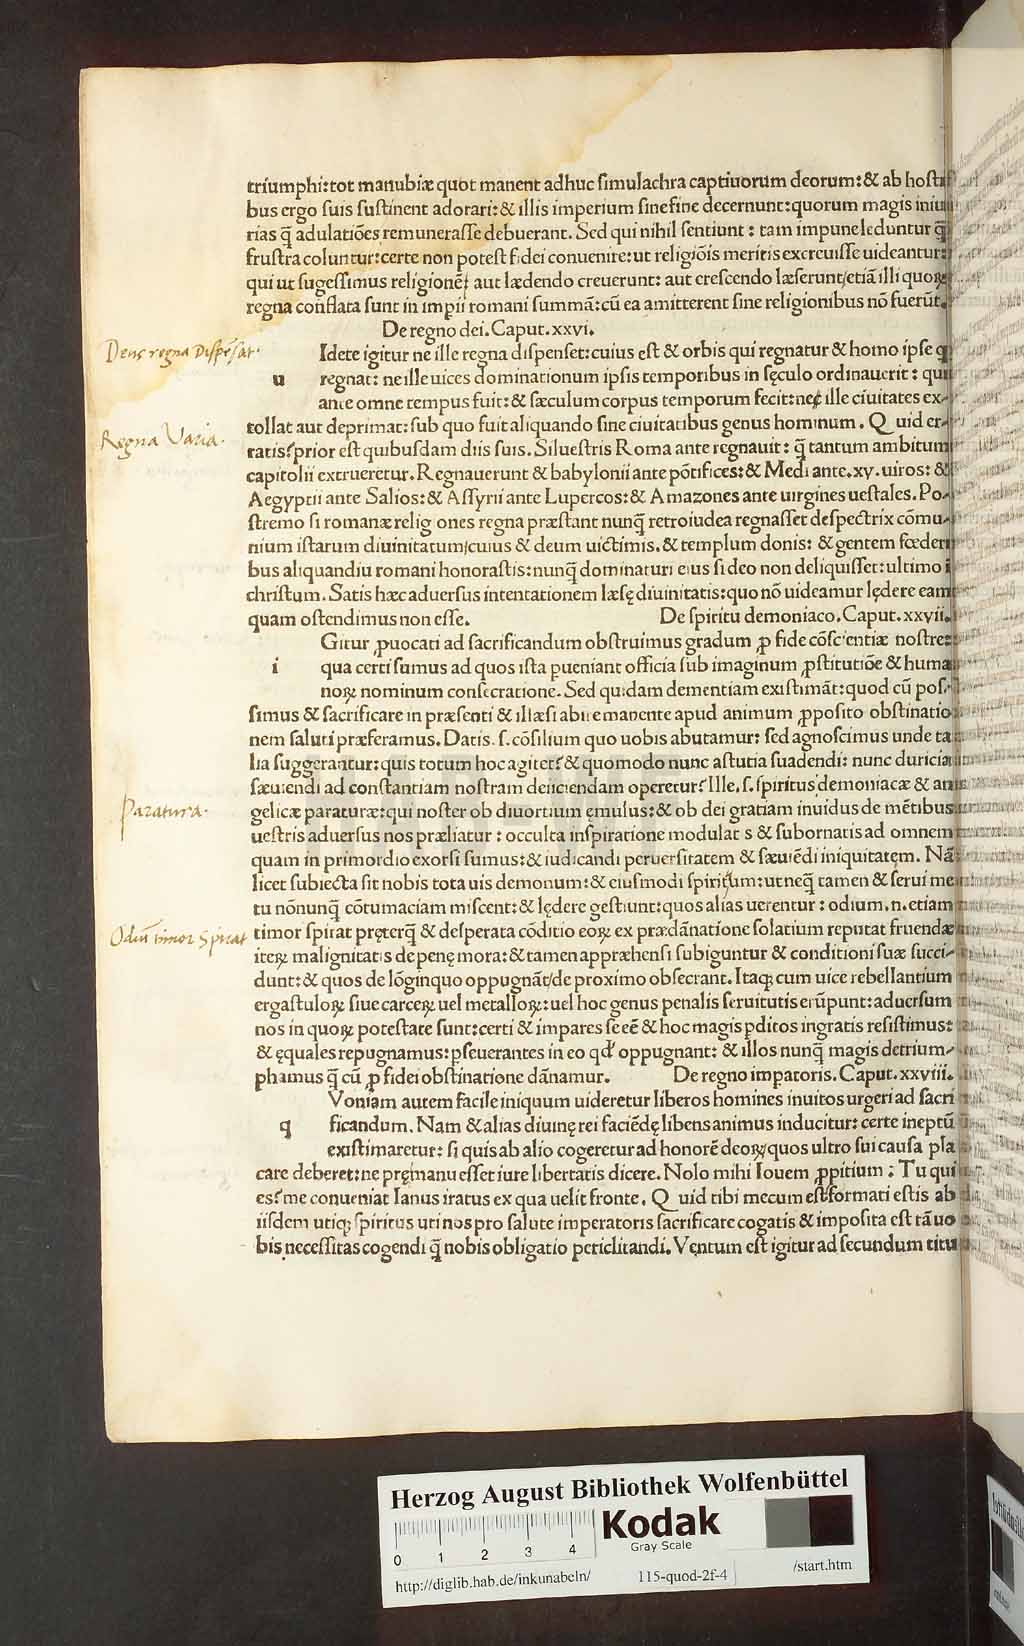 triumphi:tot manubiæ quot manent adhuc simulachra captiuorum deorum:& ab hosti
bus ergo suis sustinent adorari:& illis imperium sinefine decernunt:quorum magis iniu
rias q̃ adulatiões remunerasse debuerant. Sed qui nihil sentiunt : tam impuneleduntur q̃
frustra coluntur:certe non potest fidei conuenire:ut religiõis meritis excreuisse uideantur:
qui ut sugessimus religionẽ/ aut lædendo creuerunt: aut crescendo læserunt/etiã illi quoꝝ
regna conflata sunt in impii romani summã:cũ ea amitterent sine religionibus nõ fuerũt.
De regno dei. Caput.xxvi.
Deus regna dispẽsat.
Idete igitur ne ille regna dispenset:cuius est & orbis qui regnatur & homo ipse q
u regnat: ne ille uices dominationum ipsis temporibus in sęculo ordinauerit : qui
ante omne tempus fuit:& sæculum corpus temporum fecit:ne ille ciuitates ex-
Regna Varia.
tollat aut deprimat:sub quo fuit aliquando sine ciuitatibus genus hominum. Q uid er-
ratis?prior est quibusdam diis suis. Siluestris Roma ante regnauit: q̃ tantum ambitum
capitolii extrueretur. Regnauerunt & babylonii ante põtifices:& Medi ante.xy.uiros: &
Aegyptii ante Salios:& Assyrii ante Lupercos:& Amazones ante uirgines uestales. Po-
stremo si romanæ relig ones regna præstant nunq̃ retroiudea regnasset despectrix cõmu-
nium istarum diuinitatum/cuius & deum uictimis.& templum donis: & gentem fœderi
bus aliquandiu romani honorastis:nunq̃ dominaturi eius si deo non deliquisset:ultimo i
christum. Satis hæc aduersus intentationem læsę diuinitatis:quo nõ uideamur lędere eam
quam ostendimus non esse. De spiritu demoniaco. Caput.xxvii.
Gitur ꝓuocati ad sacrificandum obstruimus gradum ꝓ fide cõscientiæ nostre:
i qua certi sumus ad quos ista pueniant officia sub imaginum ꝓstitutiõe & huma
noꝝ nominum consecratione. Sed quidam dementiam existimãt:quod cũ pos-
simus & sacrificare in præsenti & illæsi abire manente apud animum ꝓposito obstinatio
nem saluti præferamus. Datis.s.cõsilium quo uobis abutamur: sed agnoscimus unde ta
lia suggerantur:quis totum hoc agitet? & quomodo nunc astutia suadendi: nunc duricia
sæuiendi ad constantiam nostram deiiciendam operetur? Ille.s.spiritus demoniacæ & an
Paratura.
gelicæ paraturæ:qui noster ob diuortium ęmulus:& ob dei gratiam inuidus de mẽtibus
uestris aduersus nos præliatur : occulta inspiratione modulat s & subornatis ad omnem
quam in primordio exorsi sumus:& iudicandi peruersitatem & sæuiẽdi iniquitatem. Nã
licet subiecta sit nobis tota uis demonum:& eiusmodi spirituum:ut neq̃ tamen & serui me
tu nõnunq̃ cõtumaciam miscent:& lędere gestiunt:quos alias uerentur : odium.n.etiam
Odiũ timor Spirat
timor spirat pręterq̃ & desperata cõditio eoꝝ ex prædãnatione solatium reputat fruendæ
iteꝝ malignitatis de penę mora:& tamen appræhensi subiguntur & conditioni suæ succi-
dunt:& quos de lõginquo oppugnãt/de proximo obsecrant. Itaq; cum uice rebellantium
ergastuloꝝ siue carceꝝ uel metalloꝝ:uel hoc genus penalis seruitutis erũpunt:aduersum
nos in quoꝝ potestate sunt:certi & impares se eẽ & hoc magis pditos ingratis resistimus:
& ęquales repugnamus:pseuerantes in eo qd' oppugnant: & illos nunq̃ magis detrium-
phamus q̃ cũ ꝓ fidei obstinatione dãnamur. De regno impatoris. Caput.xxviii.
Voniam autem facile iniquum uideretur liberos homines inuitos urgeri ad sacri
q ficandum. Nam & alias diuinę rei faciẽdę libens animus inducitur: certe ineptũ
existimaretur: si quis ab alio cogeretur ad honorẽ deoꝝ/quos ultro sui causa pla
care deberet:ne pręmanu esset iure libertatis dicere. Nolo mihi Iouem ꝓpitium : Tu qui
es?me conueniat Ianus iratus ex qua uelit fronte. Q uid tibi mecum est?formati estis ab
iisdem utiq; spiritus uti nos pro salute imperatoris sacrificare cogatis & imposita est tã uo
bis necessitas cogendi q̃ nobis obligatio periclitandi. Ventum est igitur ad secundum titu
Herzog August Bibliothek Wolfenbüttel
Kodak
Gray Scale
0 1 2 3 4
http://diglib.hab.de/inkunabeln/ 115-quod-2f-4 /start.htm